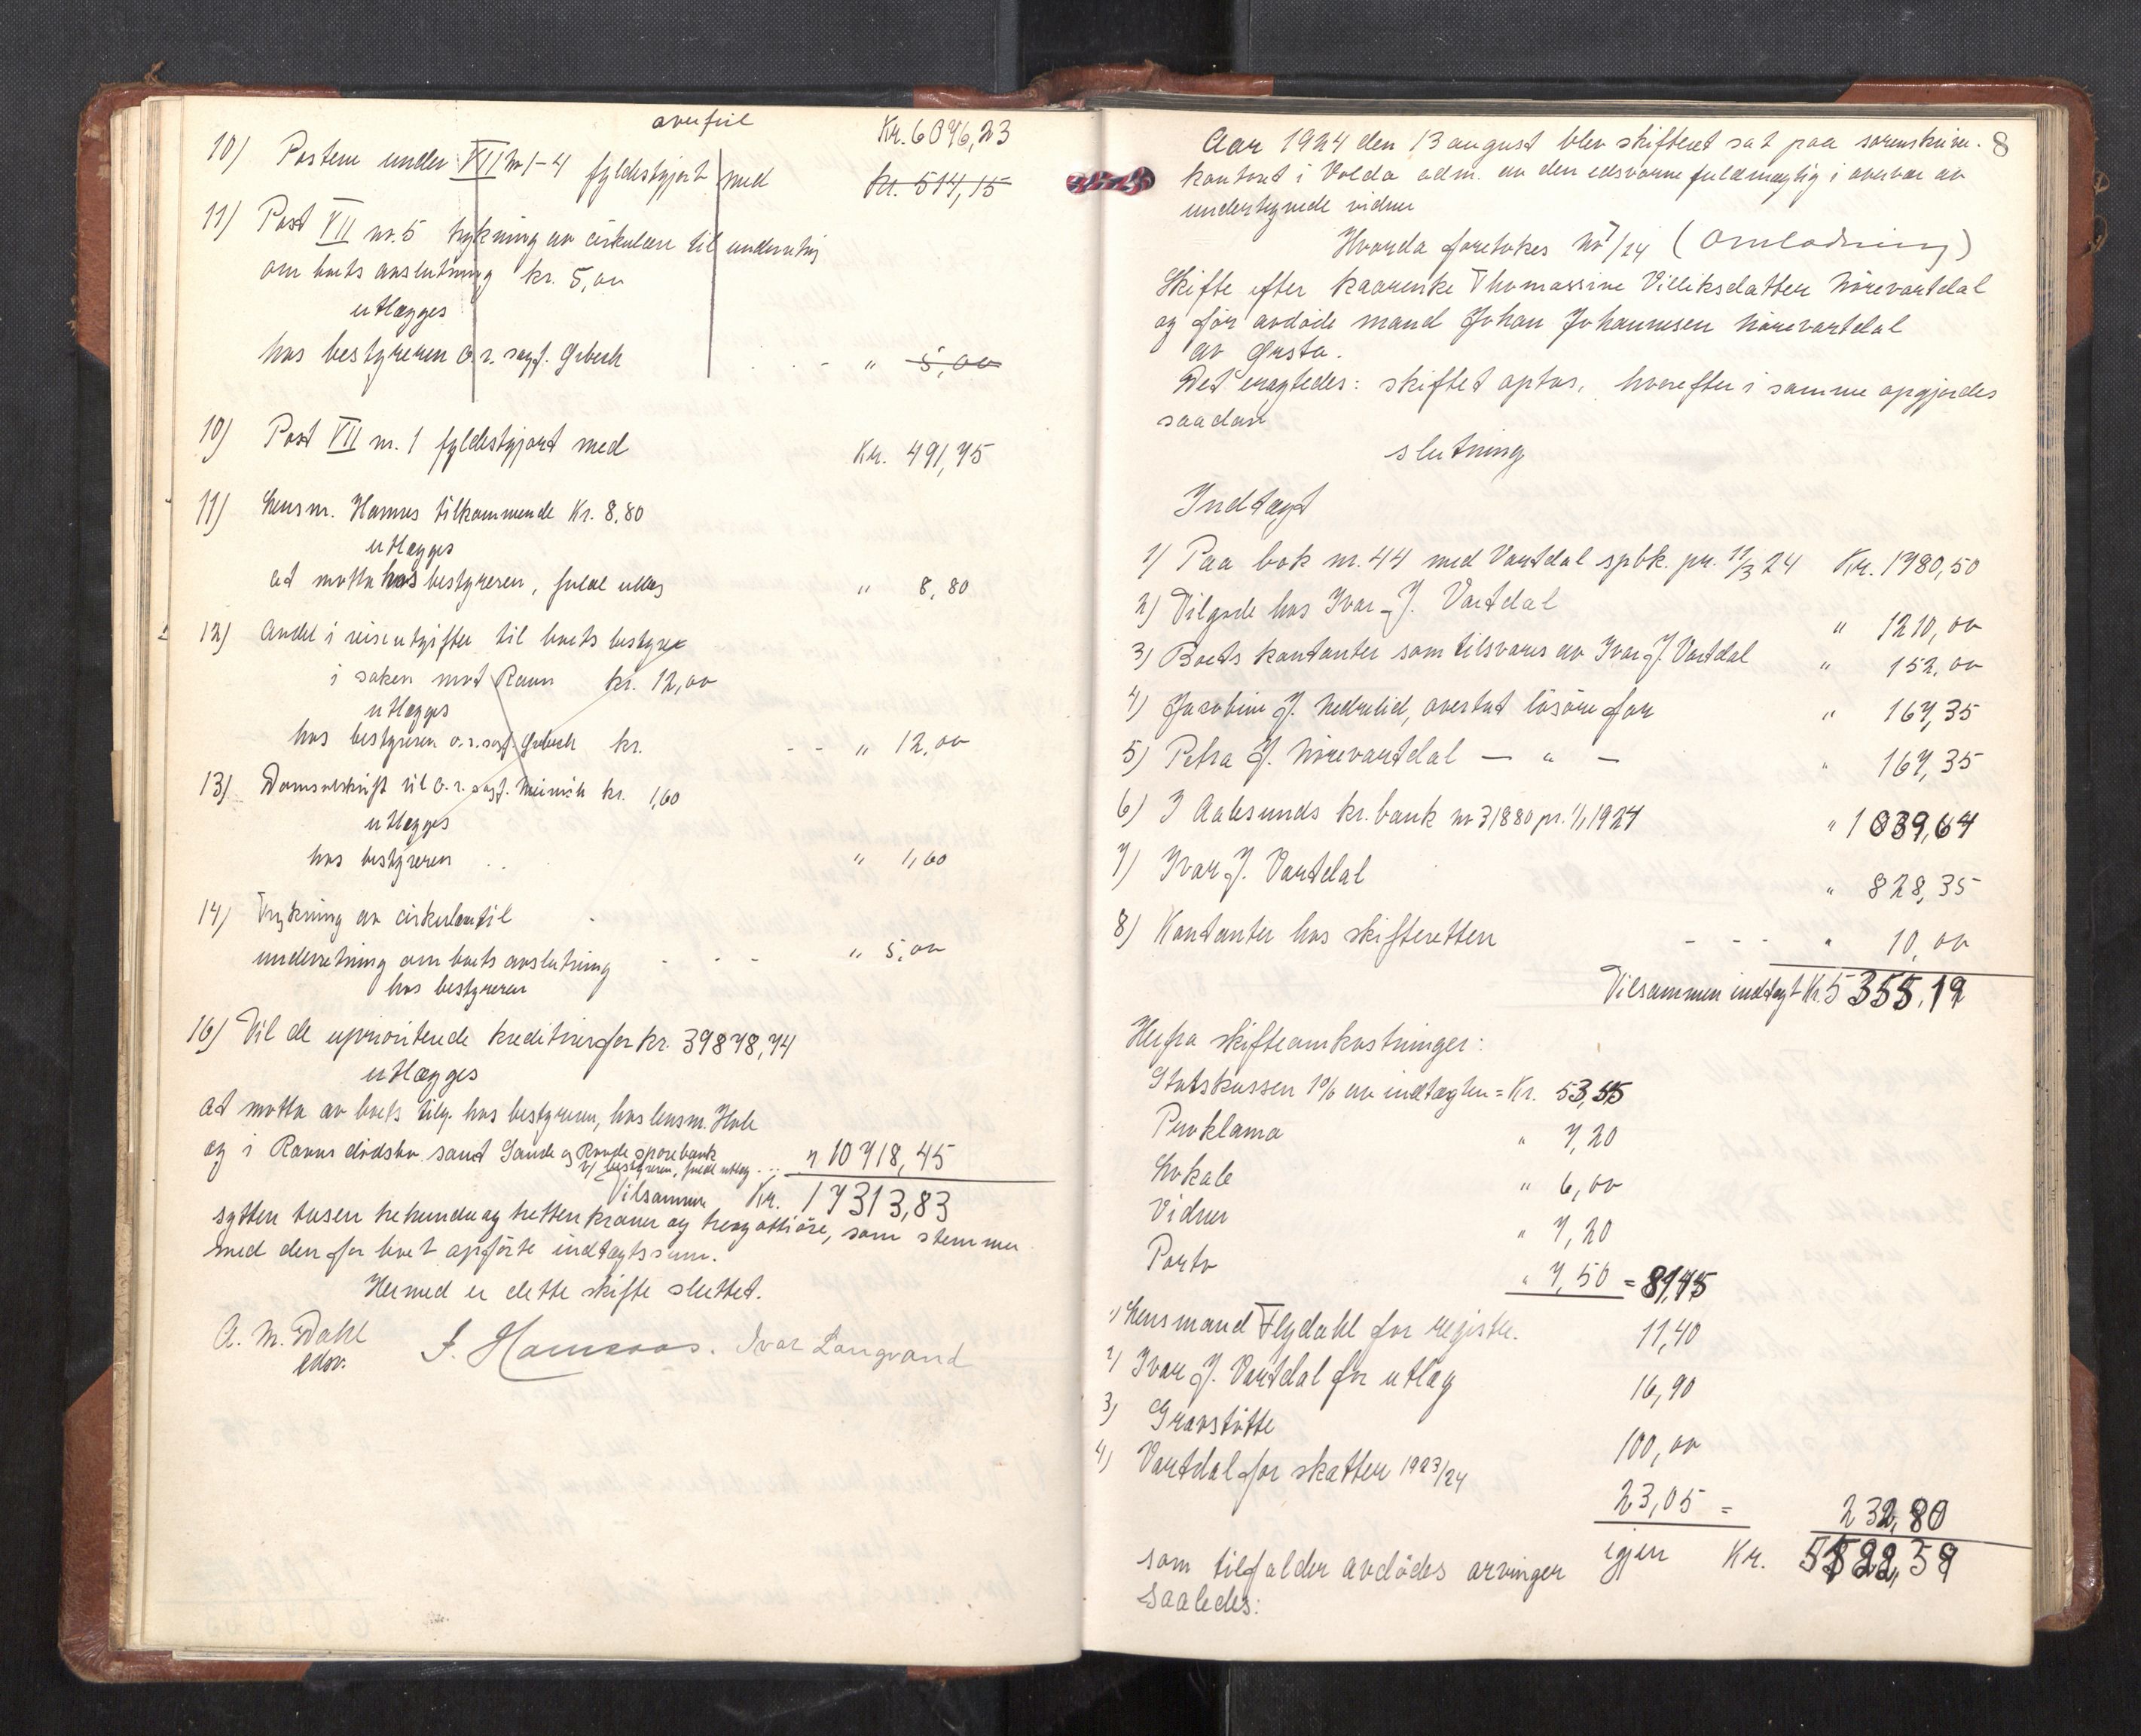 overført Kr. 6076,23
10) Postene under VII nr 1-4 fyldestgjort med kr. 514,15
11) Post VII nr. 5 trykning av cirkulære til underretning
om boets avslutning kr. 5,00
utlægges
hos bestyreren o.r. sagf. Grbech " 5,00
10) Post VII nr. 1 fyldestgjort med Kr. 491,75
11) Lensm. Hamres tilkommende Kr. 8,80
utlægges
at motta hos bestyreren, fuldt utlæg " 8,80
12) Andel i reiseutgifter til boets bestyrer
i saken mot Ravn kr. 12,00
utlægges
hos bestyreren o.r.sagf. Grbech kr. - - " 12,00
13) Domsutskrift til o.r. sagf. Meinich kr. 1,60
utlægges
hos bestyreren " 1,60
14) Trykning av cirkulære til
underretning om boets avslutning - - - " 5,00
hos bestyreren
16) Til de uprioriterede kreditorer for Kr. 39878,74
utlægges
at motta av boets tilg. hos bestyreren, hos lensm. Hole
og i Ravns dødsbo samt Sande og Rovde sparebank
2/ bestyreren, fuldt utlæg ... " 10718,45
Tilsammen Kr. 17313,83
sytten tusen trehundre og tretten kroner og treogottiøre, som stemmer
med den for boet opførte indtægtssum.
Hermed er dette skifte sluttet.
A. M. Dahl J. Hamraas. Ivar Langvand
edsv.
8
Aar 1924 den 13 august blev skifteret sat paa sorenskriver-
kontoret i Volda adm. av den edsvorne fuldmægtig i overvær av
undertegnede vidner
Hvorda foretokes nr 7/24 (Omlodning)
Skifte efter kaarenke Thomassine Villiksdatter Nørevartdal
og før avdøde mand Johan Johannesen Nørevartdal
av Ørsta.
Det eragtedes: skiftet optas, hvorefter i samme opgjordes
saadan
slutning
Indtægt
1) Paa bok nr. 44 med Vartdal spbk. pr. 11/3 24 Kr. 1780,50
2) Tilgode hos Ivar J. Vartdal " 1210,00
3) Boets kontanter som tilsvares av Ivar J. Vartdal " 152,00
4) Jacobine J. Nedrelid, overtat løsøre for " 167,35
5) Petra J. Nørevartdal — " — " 167,35
6) I Aalesunds kr. bank nr 31880 pr. 1/1 1924 " 1039,64
7) Ivar J. Vartdal " 828,35
8) Kontanter hos skifteretten - - - " 10,00
Tilsammen indtægt Kr. 5355,19
Herfra skifteomkostninger:
Statskassen 1% av indtægten = Kr. 53,55
Proklama " 7,20
Lokale " 6,00
Vidner " 7,20
Porto " 7,50 = 81,45
1) Lensmand Flydahl for registr. 11,40
2) Ivar J. Vartdal for utlæg 16,90
3) Gravstøtte 100,00
4) Vartdal for skatter 1923/24 23,05 = 232,80
igjen Kr.
som tilfalder avdødes arvinger
saaledes: